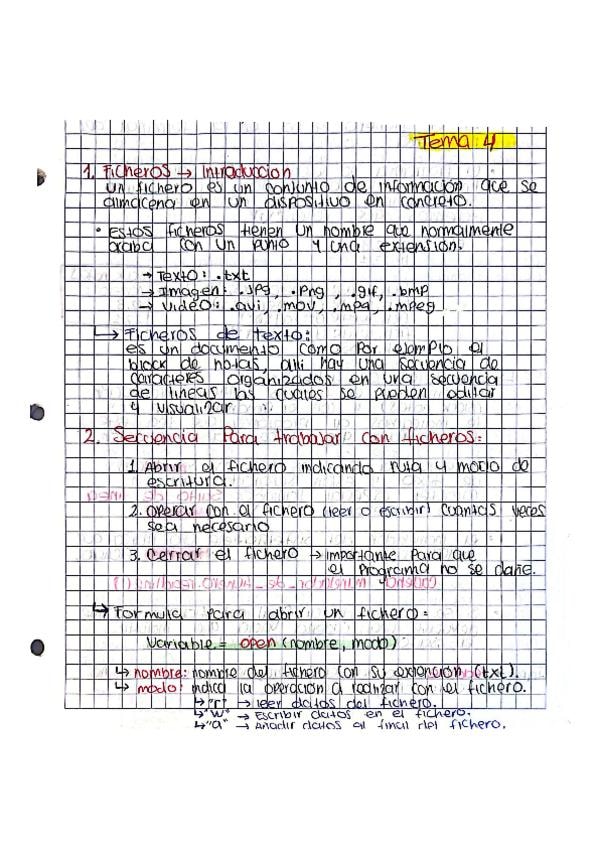 Tema 4
1. Ficheros → Introduccion
Un fichero es un conjunto de información que se
almacena en un dispositivo en concreto.
• Estos ficheros tienen un nombre que normalmente
acaba con un punto y una extension.
→ Texto: .txt
→ Imagen: .jpg, .png, .gif, .bmp
→ Video: .avi, .mov, .mp4, .mpeg
↳ Ficheros de texto:
es un documento como por ejemplo el
block de notas, alli hay una secuencia de
caracteres organizados en una secuencia
de lineas las cuales se pueden editar
y visualizar.
2. Secuencia para trabajar con ficheros:
1. Abrir el fichero indicando ruta y modo de
escritura.
2. Operar con el fichero (leer o escribir) cuantas veces
sea necesario
3. Cerrar el fichero → importante para que
el programa no se dañe.
↳ Formula para abrir un fichero:
Variable = open (nombre, modo)
↳ nombre: nombre del fichero con su extención (txt).
↳ modo: indica la operación a realizar con el fichero.
↳ "r" → leer datos del fichero.
↳ "w" → Escribir datos en el fichero.
↳ "a" → Añadir datos al final del fichero.